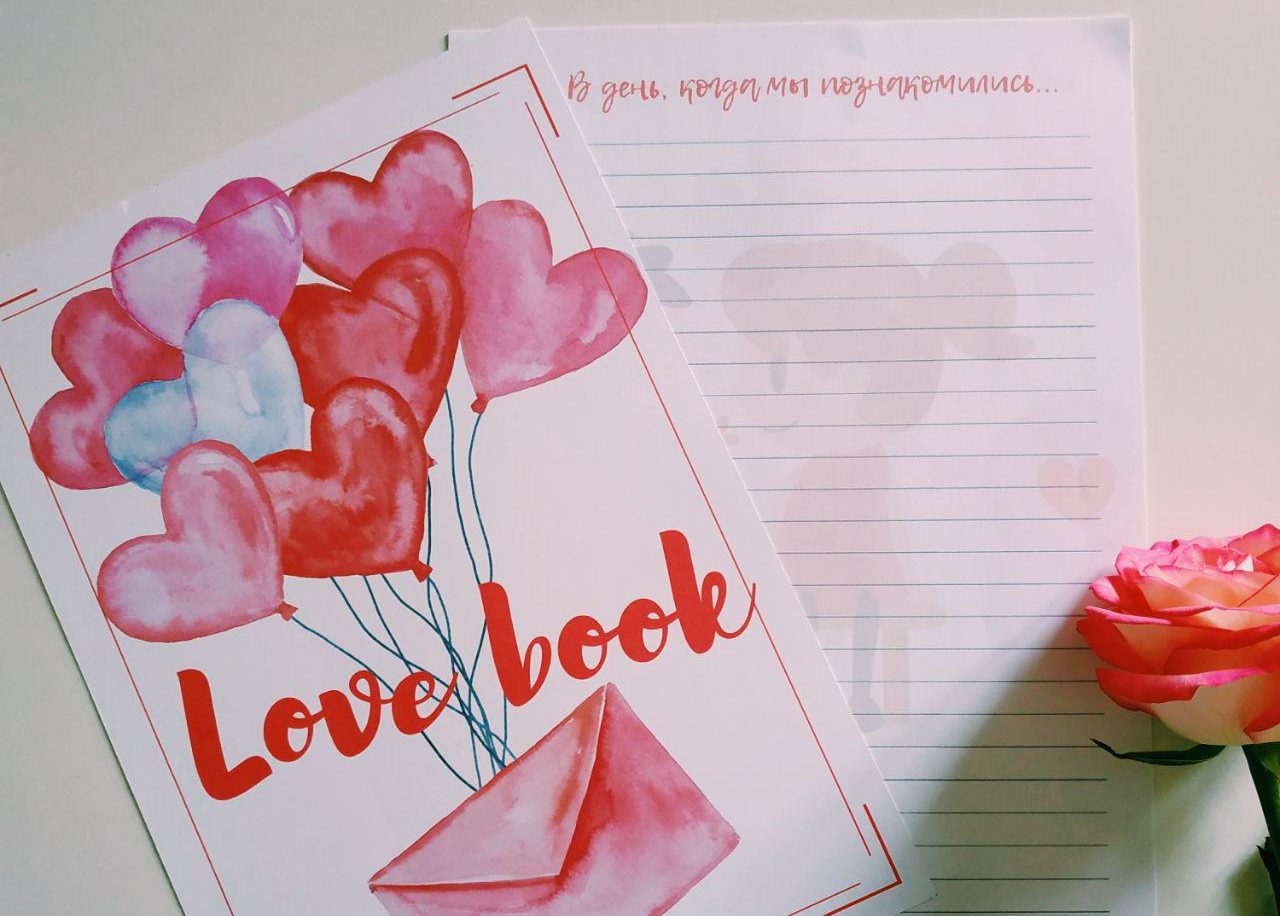 В день, когда мы познакомились...
Love book